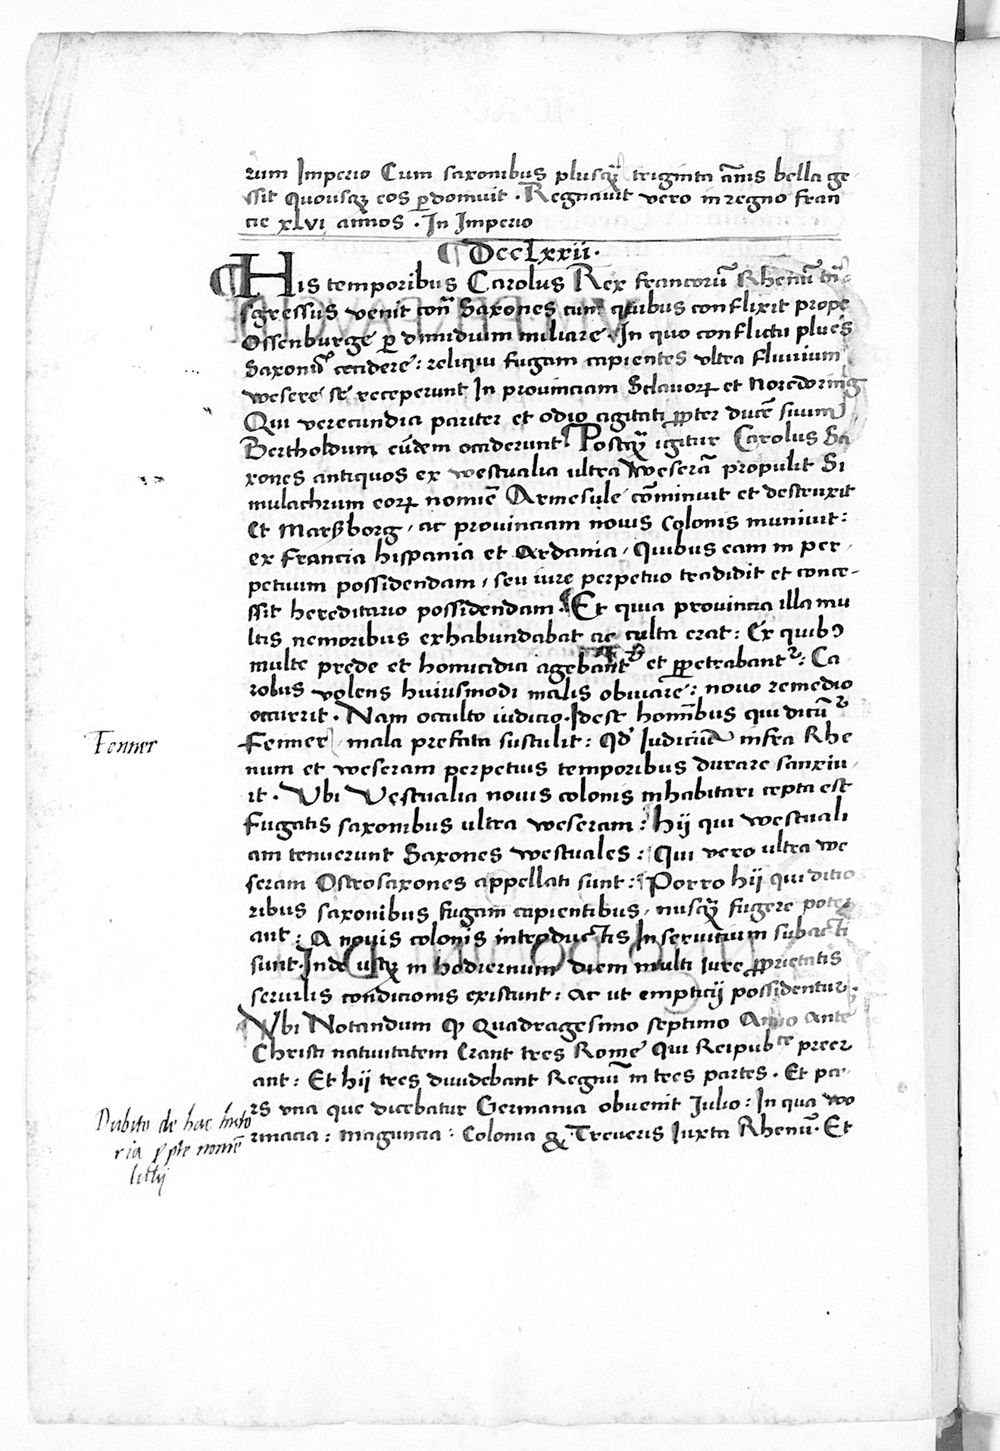 rum Imperio Cum saxonibus plusqᷓ triginta ãnis bella ge
ssit quousqꝫ eos ꝑdomuit . Regnauit vero in regno fran
cie xLvi annos . In Imperio
¶ DccLxxii .
¶ His temporibus Carolus Rex francorũ Rhenũ trã
sgressus venit conͣ Saxones cum quibus conflixit prope
Ossenburge ꝑ dimidium miliare . In quo conflictu plures
Saxonũ cecidere : reliqui fugam capientes vltra fluuium
wesere se receperunt In prouinciam Sclauoꝝ et
Qui verecundia pariter et odio agitati ꝓpter ducẽ suum
Bertholdum eũdem occiderunt ¶ Postqᷓ igitur Carolus Sa
xones antiquos ex westualia ultra weserã propulit Si
mulachrum eoꝝ nomiẽ Armesule cõminuit et destruxit
Et Marsßborg , ac prouinciam nouis colonis muniuit :
ex Francia hispania et Ardania , quibus eam in per ,
petuum possidendam , seu iure perpetuo tradidit et conce-
ssit hereditario possidendam . ¶ Et quia prouincia illa mu
ltis nemoribus exhabundabat ac culta erat : Ex quibꝰ
multe prede et homicidia agebantᷣ et ꝑpetrabantᷣ : Ca
rolus volens huiusmodi malis obuiare : nouo remedio
occurrit . Nam occulto iudicio . Idest hominibus qui dicũᷣ
Femer , mala prefata sustulit : qđ Iudiciũ infra Rhe
num et weseram perpetuis temporibus durare sanxiu
it . Vbi Vestualia nouis colonis inhabitari cepta est
Fugatis saxonibus ultra weseram : hij qui westuali
am tenuerunt Saxones westuales : Qui vero ultra we
seram Ostrosaxones appellati sunt : ¶ Porro hij qui ditio
ribus saxonibus fugam capientibus , nusqᷓ fugere poter
ant : A nouis colonis introductis In seruitium subacti
sunt . Inde usqꝫ in hodiernum diem multi iure ꝓprietatis
seruilis condicionis existunt : ac ut empticij possidentur .
Vbi Notandum ꝙ Quadragesimo septimo Anno ante
Christi natiuitatem Erant tres Rome qui Reipubᶜᵉ preer
ant : Et hij tres diuidebant Regnũ in tres partes . Et pa-
rs vna que dicebatur Germania obuenit Julio : In qua wo
rmacia : maguncia : Colonia & Treueris Iuxta Rhenũ . Et
Femer
Dubito de hac histo
ria ꝓpte nomẽ